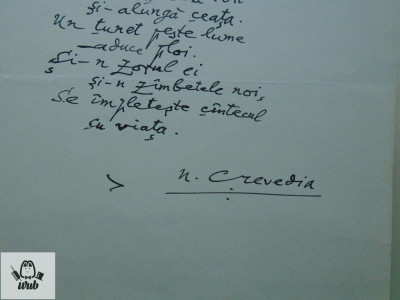 și-alungă ceața.
Un tunet peste lume
–aduce ploi.
Și-n zorul ei
și-n zîmbetele noi,
Se împletește cîntecul
cu viața.
N. Crevedia
wub